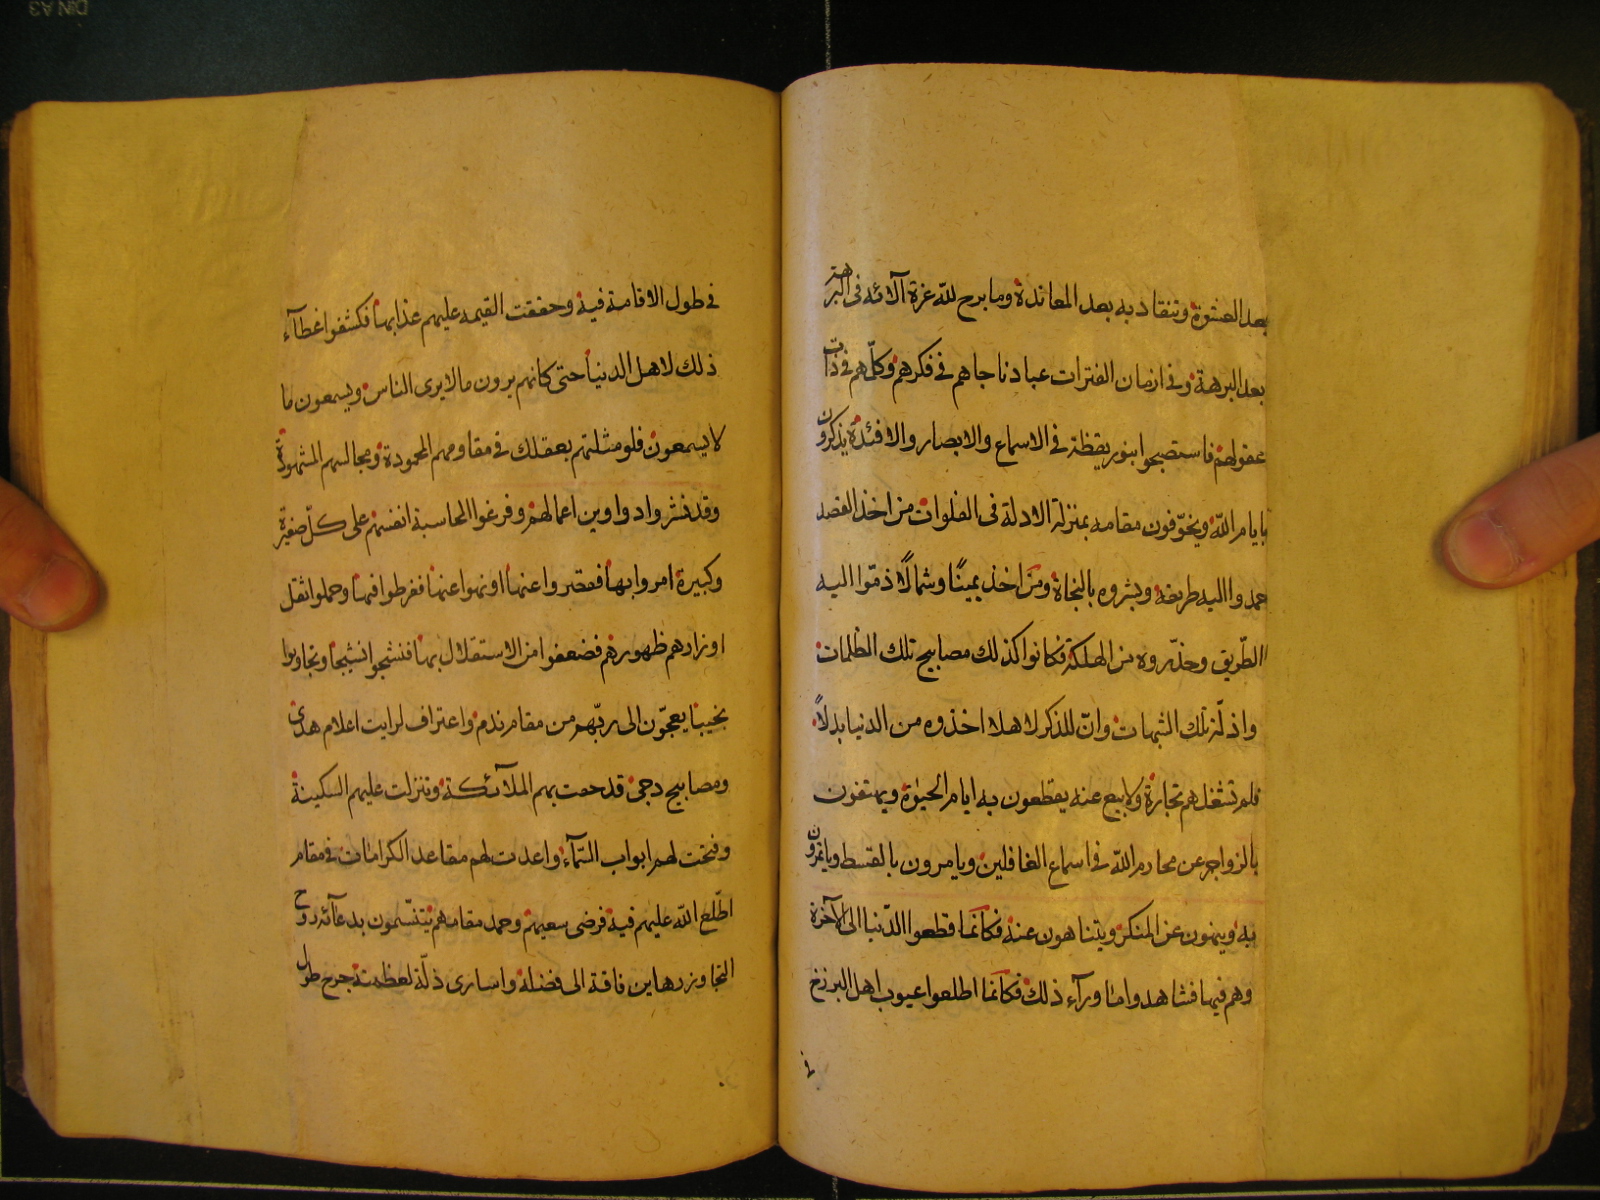 بعد العشوة وتنقاد به بعد المعاندة وما برح لله عزة آلائه فى البرهة
بعد البرهة وفى ازمان الفترات عباد ناجاهم فى فكرهم وكلّمهم فى ذات
عقولهم فاستصبحوا بنور يقظة فى الاسماع والابصار والافئدة يذكرون
بايام اللّه ويخوّفون مقامه بمنزلة الادلة فى الفلوات من اخذ القصد
حمدوا اليه طريقه وبشروه بالنجاة ومن اخذ يمينًا وشمالًا ذمّوا اليه
الطّريق وحذّروه من الهلكة فكانوا كذلك مصابيح تلك الظلمات
وادلّة تلك الشبهات وانّ للذكر لاهلا اخذوه من الدنيا بدلاً
فلم تشغلهم تجارة ولابيع عنه يقطعون به ايام الحيوة ويهتفون
بالزواجر عن محارم اللّه فى اسماع الغافلين ويامرون بالقسط وياتمرون
به وينهون عن المنكر ويتناهون عنه فكانّما قطعوا الدّنيا الى الآخرة
وهم فيها فشاهدوا ما ورآء ذلك فكانّما اطلعوا عيوب اهل البرزخ
فى
فى طول الاقامة فيه وحققت القيمه عليهم عذابها فكشفوا غطآء
ذلك لاهل الدنيا حتى كانهم يرون مالا يرى الناس ويسمعون ما
لا يسمعون فلو مثلتهم بعقلك فى مقاومهم المحمودة ومجالسهم المشهودة
وقد نشروا دواوين اعمالهم وفرغوا لمحاسبة انفسهم على كلّ صغيرة
وكبيرة امروا بها فقصروا عنها او نهوا عنها ففرطوا فيها وحملوا ثقل
اوزارهم ظهورهم فضعفوا من الاستقلال بها فنشجوا نشيجا وتجاوبوا
نحيبا يعجّون الى ربّهم من مقام ندم واعتراف لرايت اعلام هدى
ومصابيح دجى قد حفت بهم الملآئكة وتنزلت عليهم السكينة
وفتحت لهم ابواب السّمآء واعدت لهم مقاعد الكرامات فى مقام
اطّلع اللّه عليهم فيه فرضى سعيهم وحمد مقامهم يتنسّمون بدعآئه روح
التجاوز رهاين فاقة الى فضله واسارى ذلّة لعظمته جرح طول